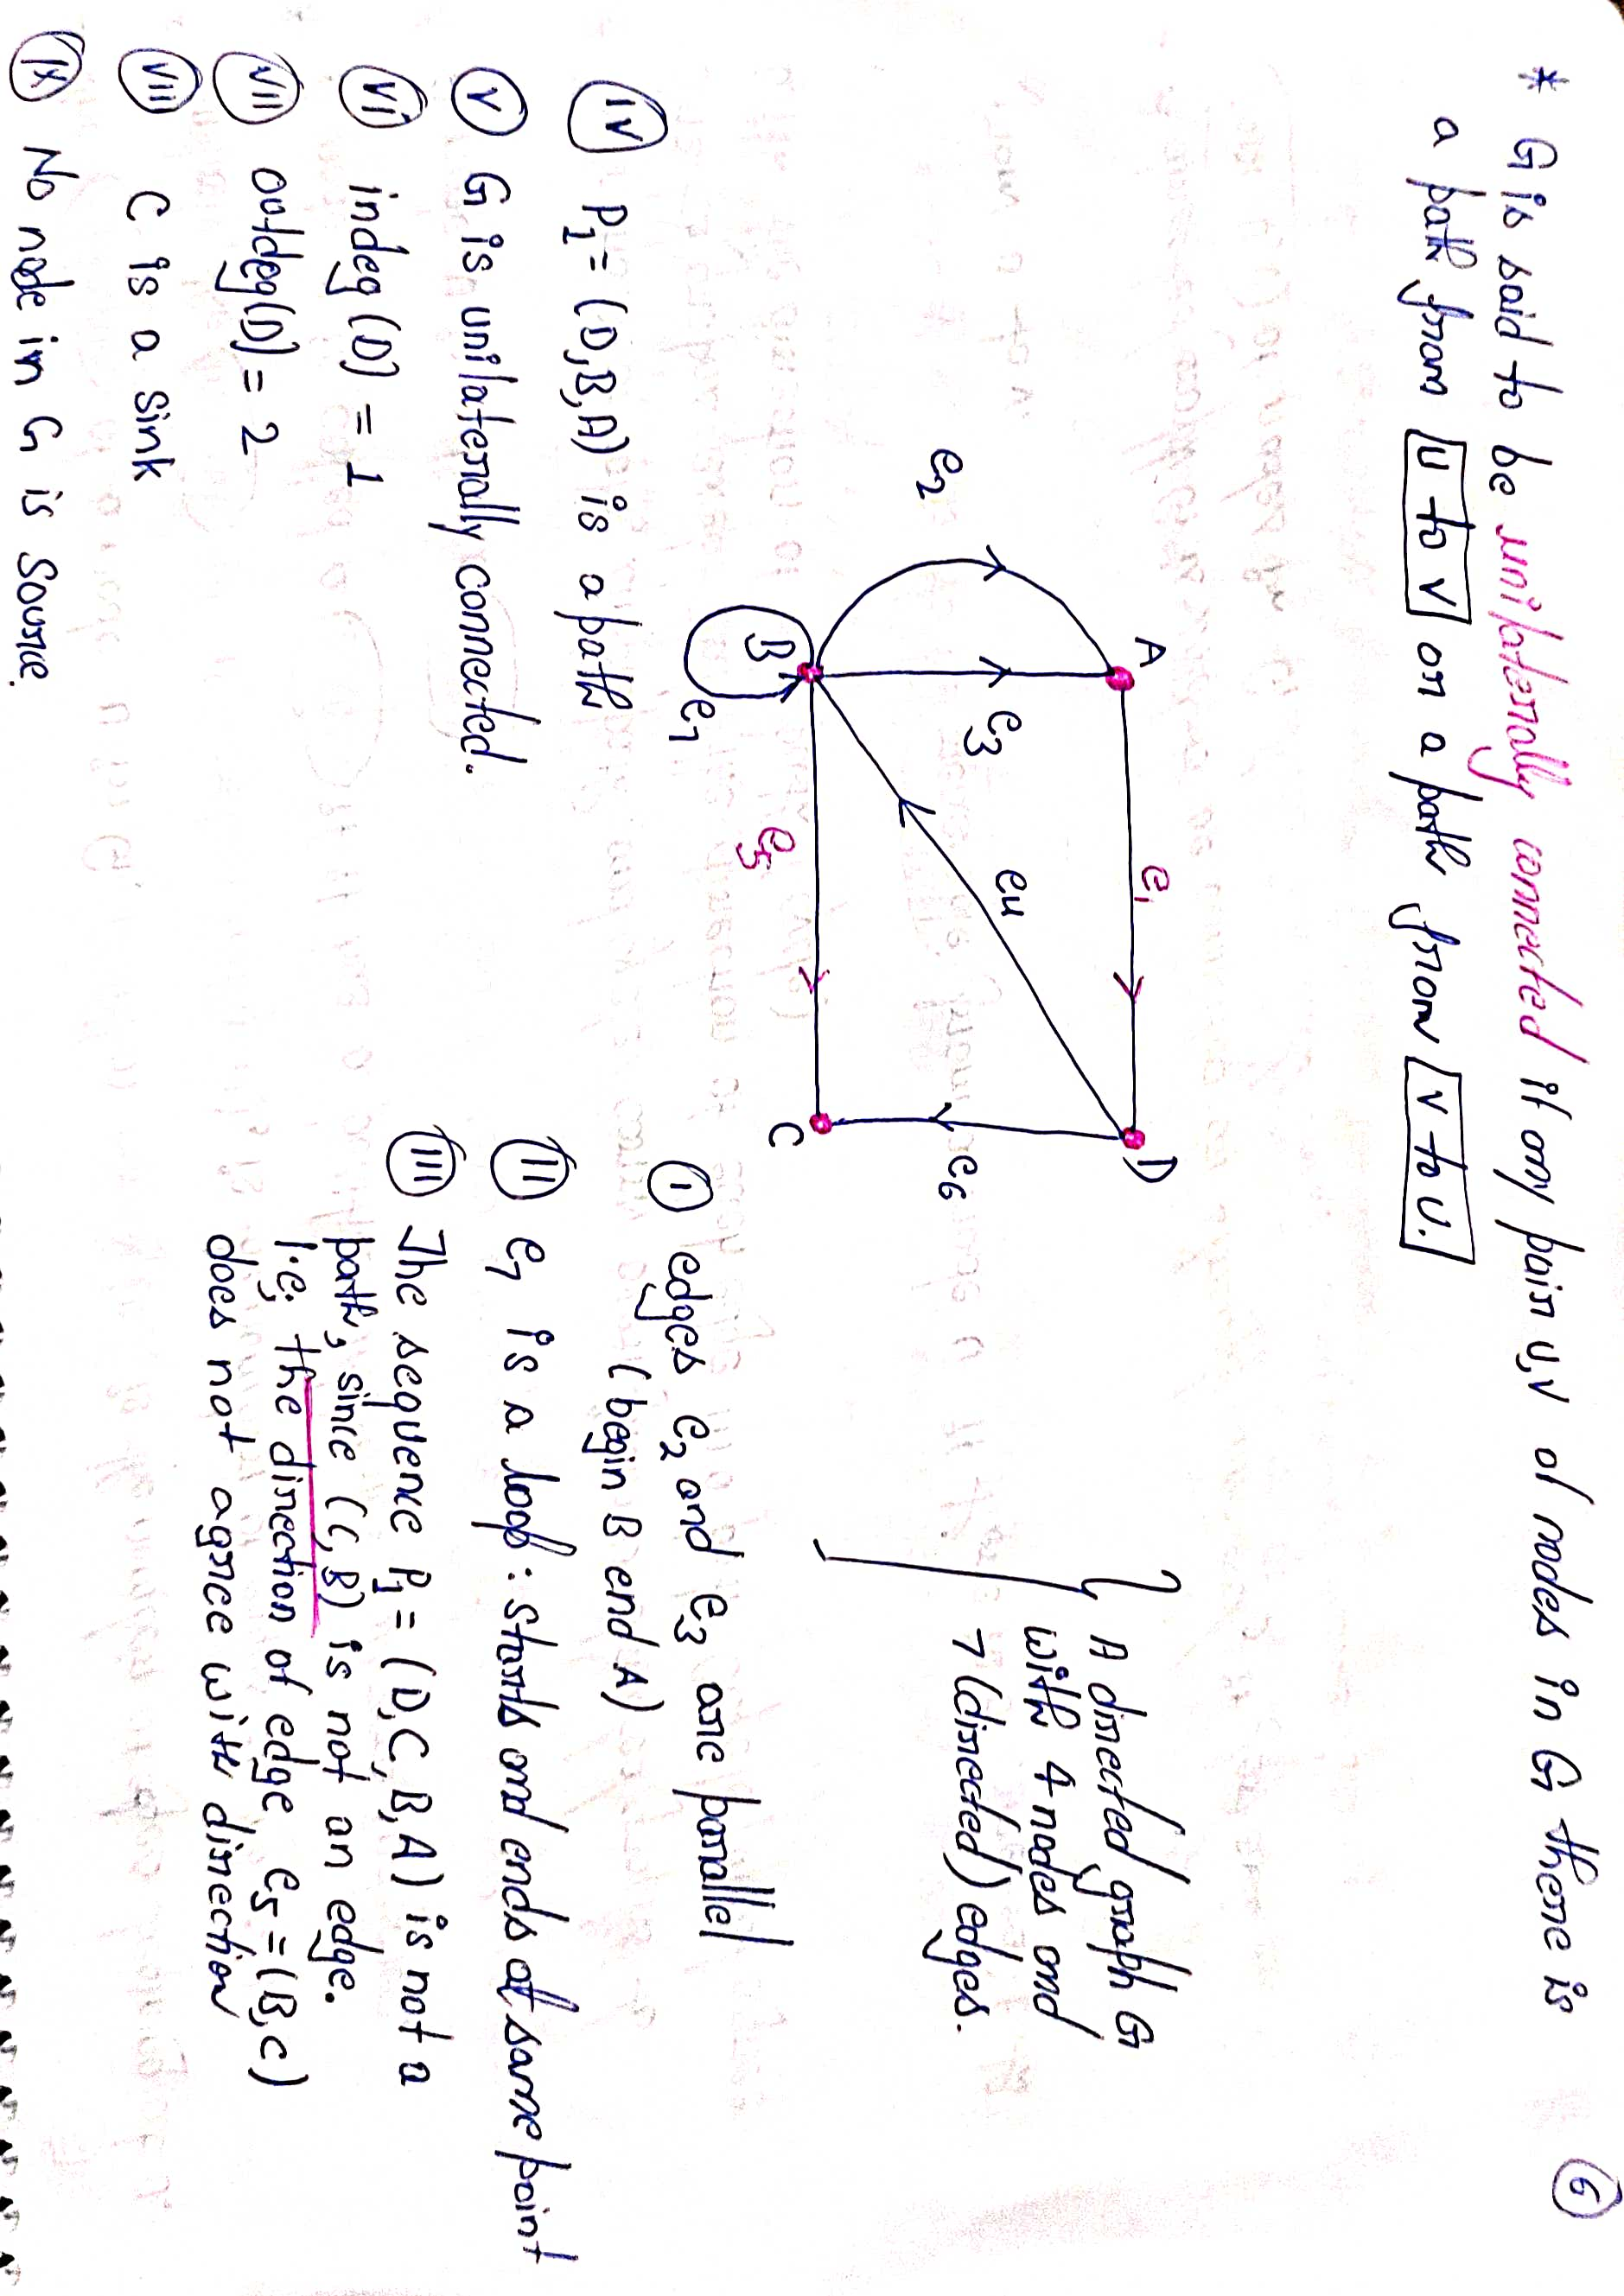 6
* G is said to be unilaterally connected if any pair u,v of nodes in G there is
a path from u to v or a path from v to u.
A
e1
D
e2
e3
e4
e6
B
e5
C
e7
A directed graph G
with 4 nodes and
7 (directed) edges.
I edges e2 and e3 are parallel
(begin B end A)
II e7 is a loop : starts and ends at same point
III The sequence P1 = (D,C,B,A) is not a
path, since (C,B) is not an edge.
i.e; the direction of edge e5 = (B,C)
does not agree with direction
IV P1 = (D,B,A) is a path
V G is unilaterally connected.
VI indeg (D) = 1
VII outdeg(D) = 2
VIII C is a sink
IX No node in G is source.